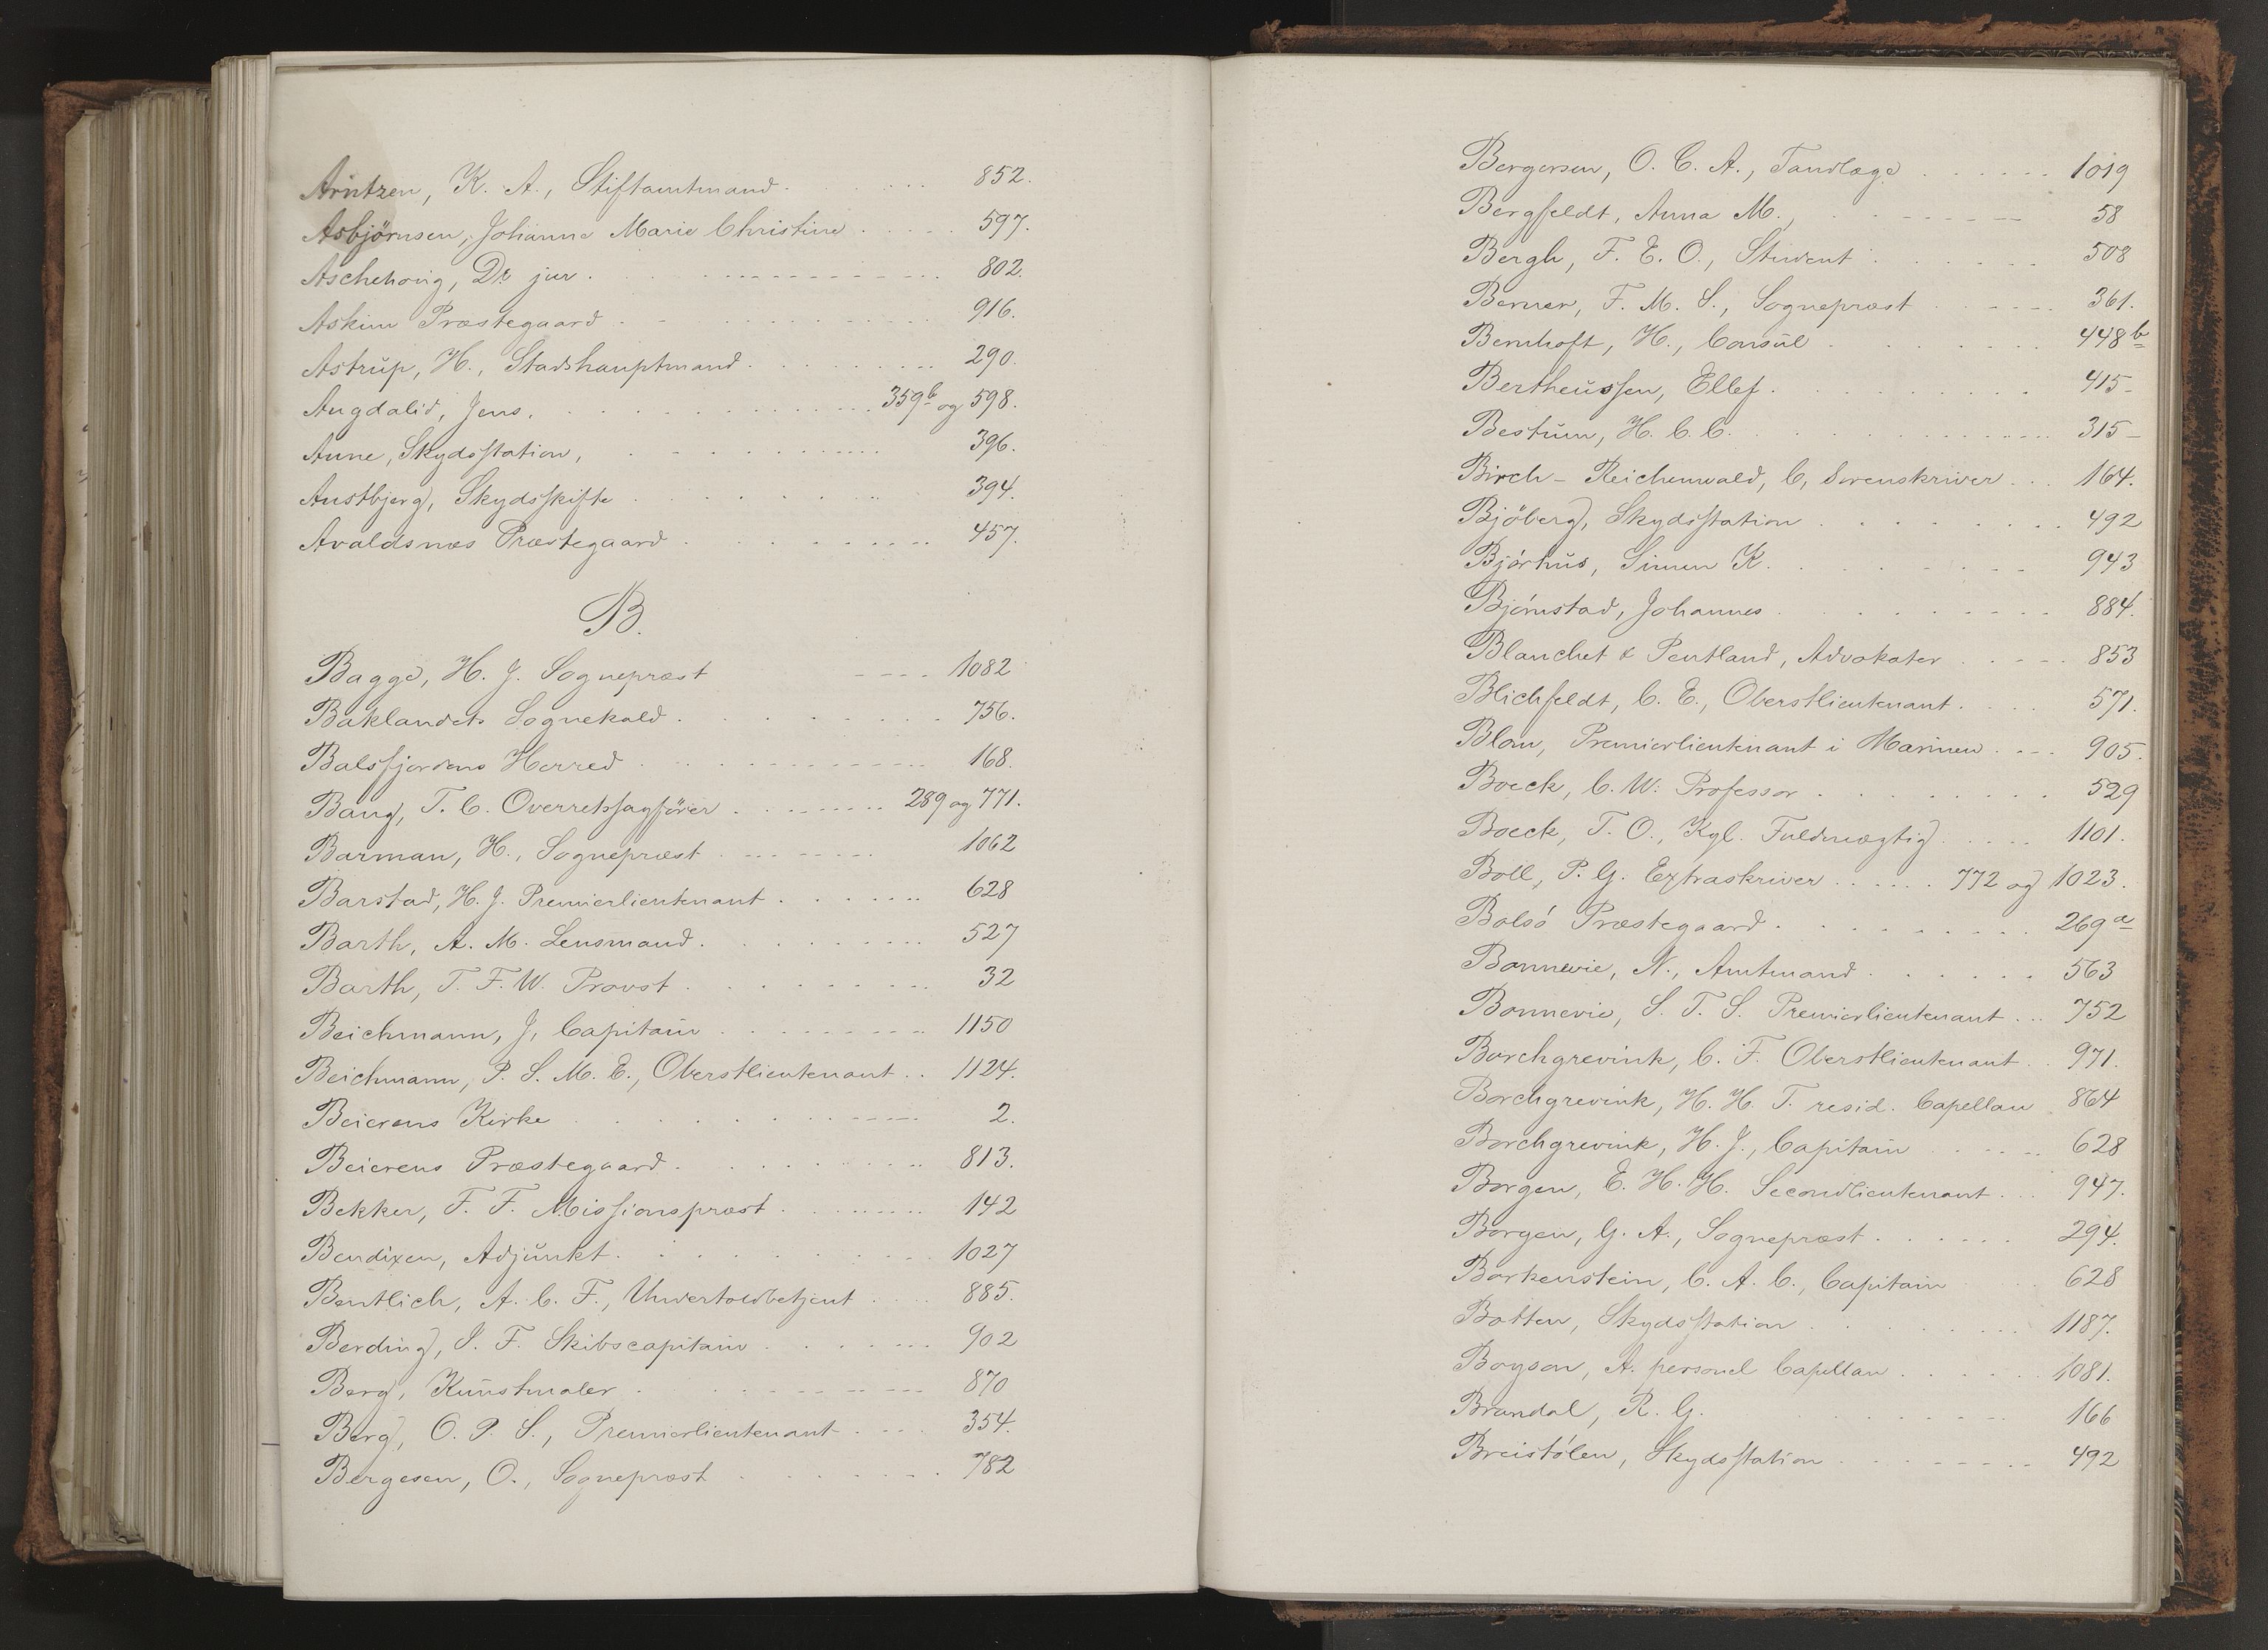 Arntzen, K. A., Stiftamtmand 852.
Asbjørnsen, Johanne Marie Christine 597.
Aschehoug, Dr. jur. 802.
Askim Præstegaard 916.
Astrup, H., Stadshauptmand 290.
Augdalid, Jens, 359b og 598.
Aune, Skydsstation, 396.
Austbjerg, Skydsskifte 394.
Avaldsnæs Præstegaard 457.
B.
Bagge, H. J. Sognepræst 1082
Baklandets Sognekald 756.
Balsfjordens Herred 168.
Bang, T. C. Overretssagfører 289 og 771.
Barman, H., Sognepræst 1062
Barstad, H. J. Premierlieutenant 628
Barth, A. M. Lensmand 527
Barth, T. F. W. Provst 32
Beichmann, J, Capitain 1150
Beichmann, P. S. M. E., Oberstlieutenant 1124.
Beierens Kirke 2.
Beierens Præstegaard 813.
Bekker, F. F. Missionspræst 142
Bendixen, Adjunkt 1027
Bentlich, A. C. F., Undertoldbetjent 885.
Berding, S. F. Skibscapitain 902
Berg, Kunstmaler 870
Berg, O. P. S., Premierlieutenant 354.
Bergesen, O., Sognepræst 782
Bergersen, O. C. A., Tandlæge 1019
Bergfeldt, Anna M., 58
Bergh, F. E. O., Student 508
Berner, F. M. S., Sognepræst 361.
Bernhoft, H., Consul 448b
Bertheussen, Ellef 415
Bestum, H. C. C. 315
Birch-Reichenwald, C, Sorenskriver 164.
Bjöberg, Skydsstation 492
Bjørhus, Simen K. 943
Bjørnstad, Johannes 884.
Blanchet & Pentland, Advokater 853
Blichfeldt, C. E., Oberstlieutenant 571.
Blom, Premierlieutenant i Marinen 905.
Boeck, C. W. Professor 529
Boeck, T. O., Kgl. Fuldmægtig 1101.
Boll, P. G. Extraskriver 772 og 1023.
Bolsø Præstegaard 269a
Bonnevie, N., Amtmand 563
Bonnevie, S. T. S. Premierlieutenant 752
Borchgrevink, C. F. Oberstlieutenant 971.
Borchgrevink, H. H. T. resid. Capellan 864
Borchgrevink, H. J., Capitain 628
Borgen, E. H. H. Secondlieutenant 947.
Borgen, G. A., Sognepræst 294.
Borkenstein, C. A. C., Capitain 628
Botten, Skydsstation 1187.
Boyson, A. personel Capellan 1081.
Brandal, R. G. 166
Breistølen, Skydsstation 492